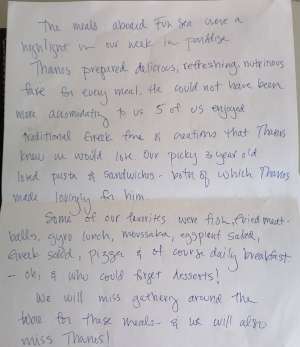 The meals aboard Fun Sea were a
highlight in our week in paradise
Thanos prepared delicious, refreshing, nutritious
fare for every meal. He could not have been
more accommodating to us 5 of us enjoyed
traditional Greek fare & creations that Thanos
knew we would love. Our picky 3 year old
loved pasta & sandwiches - both of which Thanos
made lovingly for him.
Some of our favorites were fish, fried meat-
balls, gyro lunch, moussaka, eggplant salad,
Greek salad, pizza & of course daily breakfast
- oh, & who could forget desserts!
We will miss gathering around the
table for these meals - & we will also
miss Thanos!